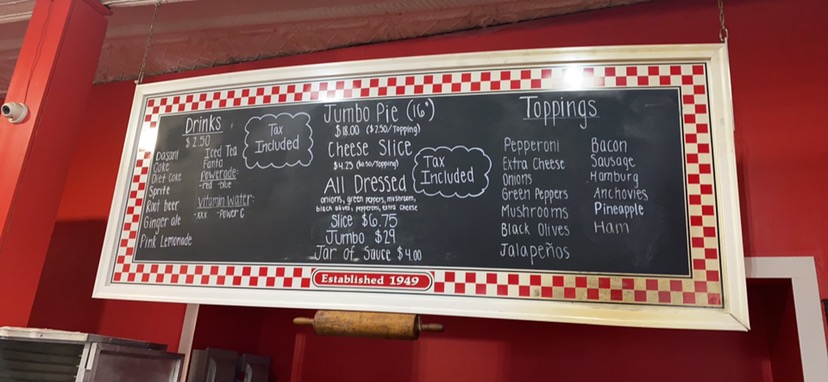 Drinks
$2.50
Dasani
Coke
Diet Coke
Sprite
Root beer
Ginger ale
Pink Lemonade
Iced Tea
Fanta
Powerade:
-red -blue
Vitamin Water:
-xxx -Power C
Tax
Included
Jumbo Pie (16")
$18.00 ($2.50/Topping)
Cheese Slice
$4.75 ($0.50/Topping)
Tax
Included
All Dressed
onions, green peppers, mushroom,
black olives, pepperoni, extra cheese
Slice $6.75
Jumbo $29
Jar of Sauce $4.00
Toppings
Pepperoni
Extra Cheese
Onions
Green Peppers
Mushrooms
Black Olives
Jalapeños
Bacon
Sausage
Hamburg
Anchovies
Pineapple
Ham
Established 1949